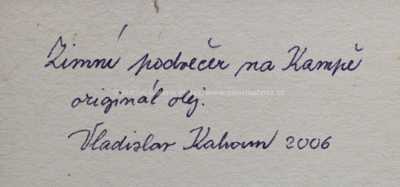 Zimní podvečer na Kampě
originál olej.
Vladislav Kahoun 2006